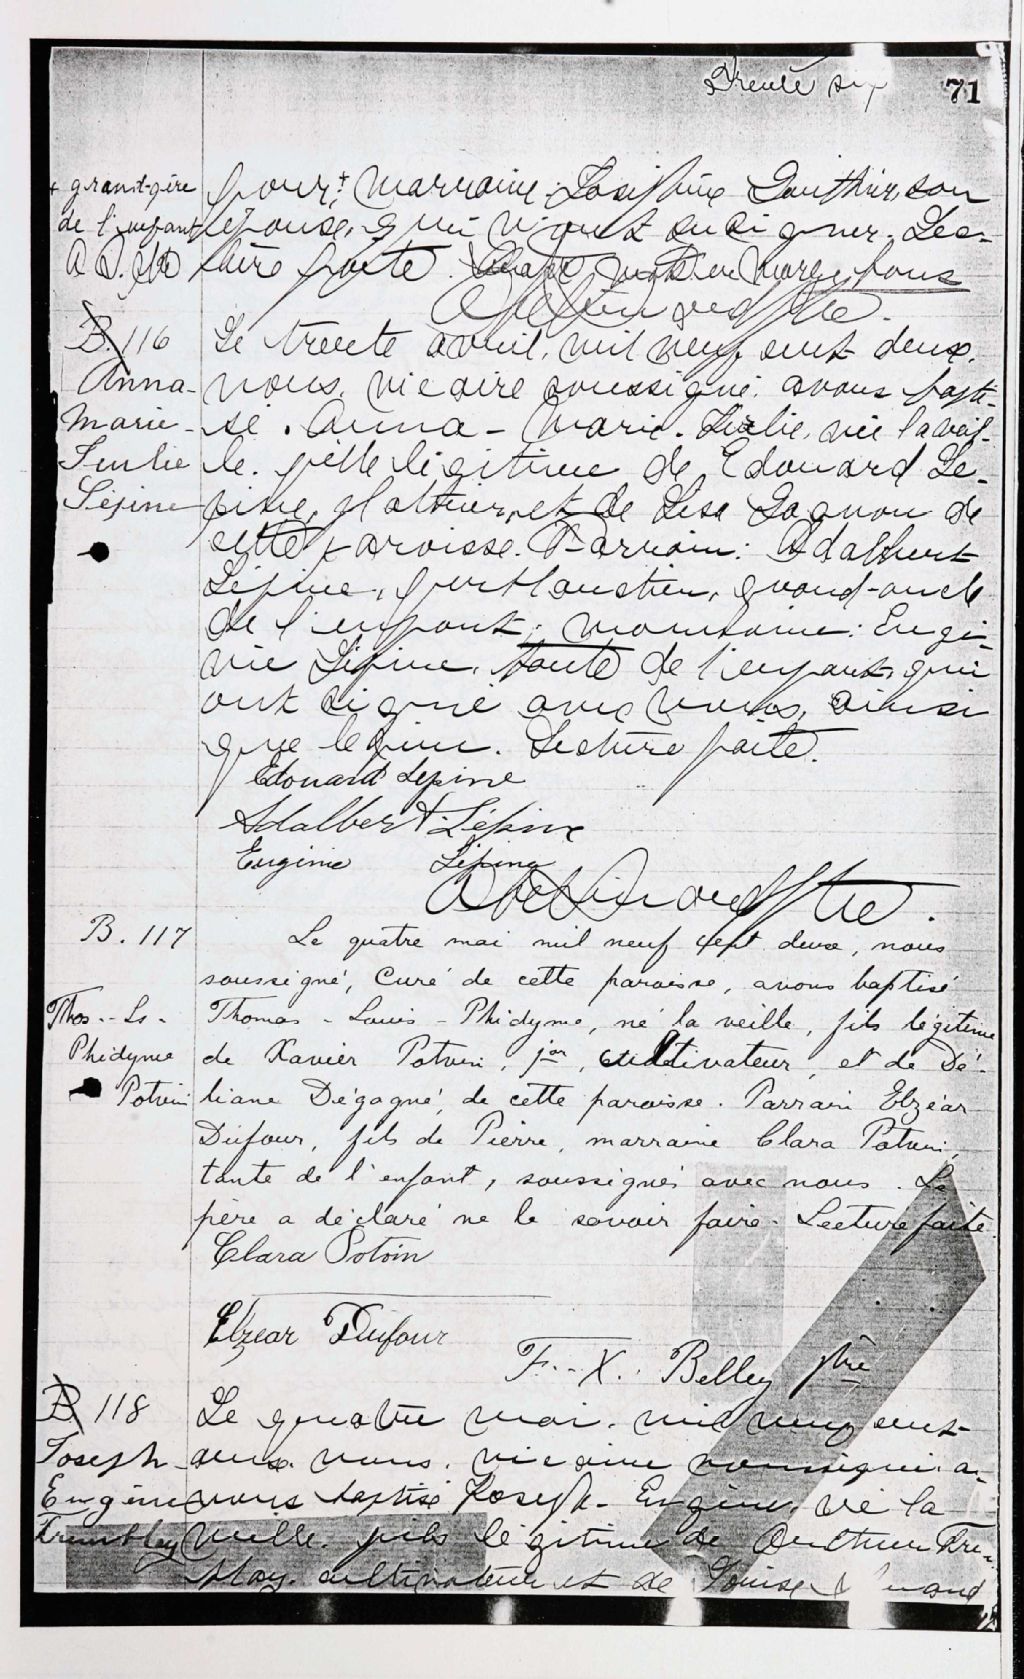 Trente six 71
+ grand-père
de l'enfant
pour + marraine Josephine Gauthier, son
épouse, qui n'ont su signer. Lec-
ture faite. mot en marge bons
B. 116
Anna-
Marie-
Lépine
Le trente avril, mil neuf cent deux,
nous, vicaire soussigné, avons bapti-
sé, Anna-Marie- née la veil-
le, fille légitime de Edouard Lé-
pine, et de Gagnon de
cette paroisse. Parrain: Adalbert
Lépine, grand-oncle
de l'enfant; marraine: Eugé-
nie Lépine, tante de l'enfant, qui
ont signé avec nous, ainsi
que le père. Lecture faite.
Edouard Lepine
Adalbert Lépine
Eugénie Lépine
B. 117
Thos.- Ls -
Phidyme
Potvin
Le quatre mai mil neuf cent deux, nous
soussigné, Curé de cette paroisse, avons baptisé
Thomas - Louis - Phidyme, né la veille, fils légitime
de Xavier Potvin, jor, cultivateur, et de Dé-
liane Dégagné, de cette paroisse. Parrain Elzéar
Dufour, fils de Pierre, marraine Clara Potvin,
tante de l'enfant, soussignés avec nous. Le
père a déclaré ne le savoir faire. Lecture faite.
Clara Potvin
Elzear Dufour
F.-X. Belley ptre
B. 118
Joseph-
Eugène
Tremblay
Le quatre mai, mil neuf cent
deux, nous, vicaire soussigné, a-
vons baptisé Joseph-Eugène, né la
veille, fils légitime de Arthur Trem-
blay, cultivateur et de Louise